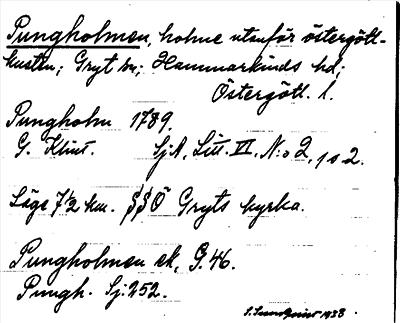 Pungholmen, holme utanför östergöt-
kusten; Gryt sn; Hammarkinds hd;
Östergötl. l.
Pungholm 1789.
G. Klint. SjA, Litt. VI, N:o 2, 1 o 2.
Läge 7½ km. SSÖ Gryts kyrka.
Pungholmen ek, G. 46.
Pungh. Sj. 252.
S. Sundquist 1938